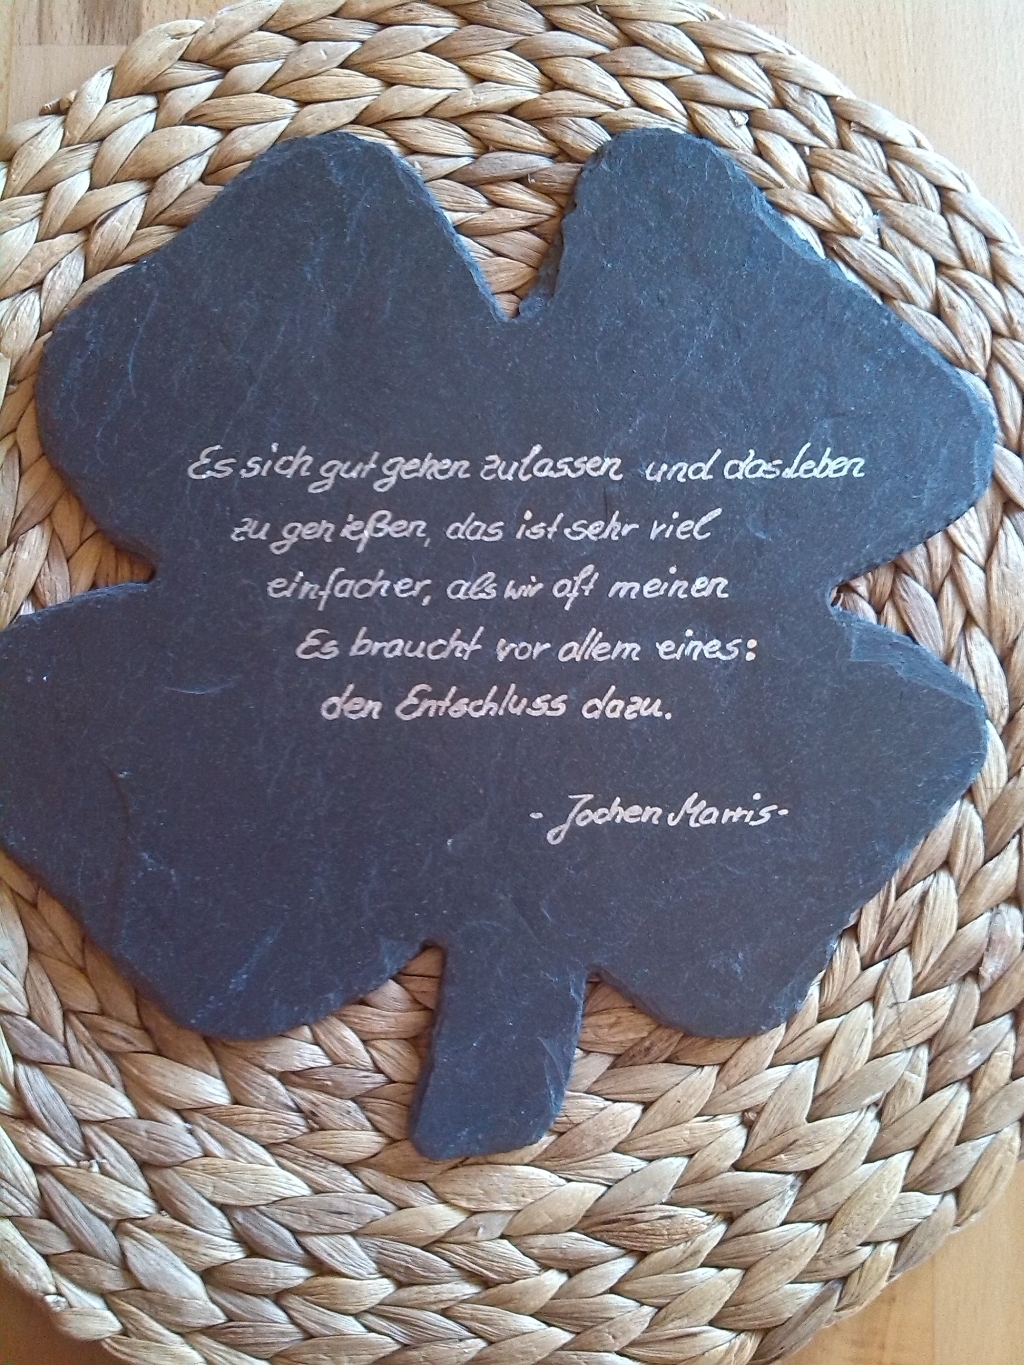 Es sich gut gehen zu lassen und das Leben
zu genießen, das ist sehr viel
einfacher, als wir oft meinen
Es braucht vor allem eines:
den Entschluss dazu.
- Jochen Marris -